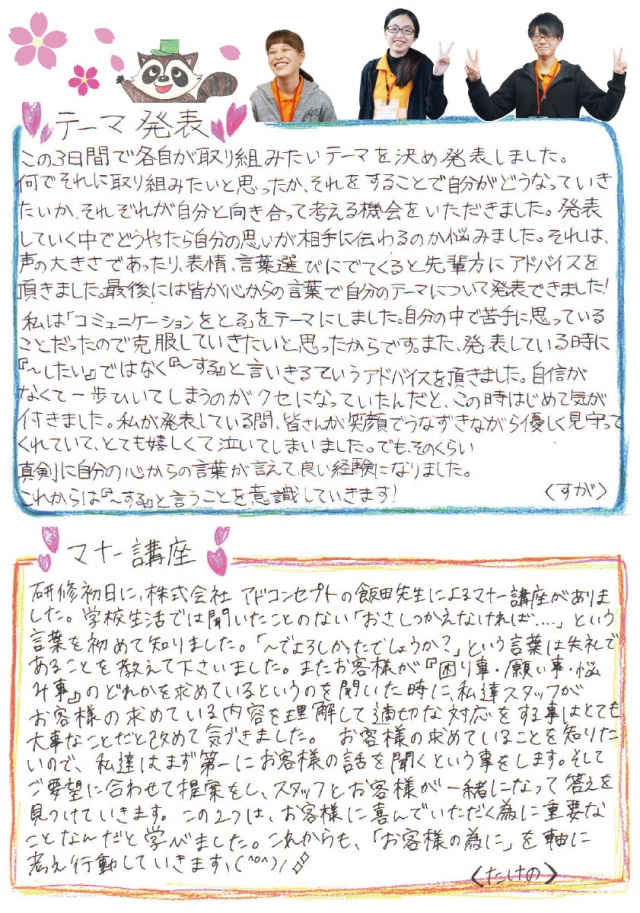 テーマ発表
この3日間で各自が取り組みたいテーマを決め発表しました。
何でそれに取り組みたいと思ったか、それをすることで自分がどうなっていき
たいか、それぞれが自分と向き合って考える機会をいただきました。発表
していく中でどうやったら自分の思いが相手に伝わるのか悩みました。それは、
声の大きさであったり、表情、言葉選びにでてくると先輩方にアドバイスを
頂きました。最後には皆が心からの言葉で自分のテーマについて発表できました!
私は「コミュニケーションをとる」をテーマにしました。自分の中で苦手に思っている
ことだったので克服していきたいと思ったからです。また、発表している時に
『〜したい』ではなく『〜する』と言いきるていうアドバイスを頂きました。自信が
なくて一歩ひいてしまうのがクセになっていたんだと、この時はじめて気が
付きました。私が発表している間、皆さんが笑顔でうなずきながら優しく見守って
くれていて、とても嬉しくて泣いてしまいました。でも、そのくらい
真剣に自分の心からの言葉が言えて良い経験になりました。
これからは『〜する』と言うことを意識していきます!
〈すが〉
マナー講座
研修初日に、株式会社 アドコンセプトの飯田先生によるマナー講座がありま
した。学校生活では聞いたことのない「おさしつかえなければ....」という
言葉を初めて知りました。「〜でよろしかったでしょうか?」という言葉は失礼で
あることを教えて下さいました。またお客様が『困り事・願い事・悩
み事』のどれかを求めているというのを聞いた時に、私達スタッフが
お客様の求めている内容を理解して適切な対応をする事はとても
大事なことだと改めて気づきました。 お客様の求めていることを知りた
いので、私達はまず第一にお客様の話を聞くという事をします。そして
ご要望に合わせて提案をし、スタッフとお客様が一緒になって答えを
見つけていきます。この2つは、お客様に喜んでいただく為に重要な
ことなんだと学びました。これからも、「お客様の為に」を軸に
考え行動していきます\(^o^)/
〈たけの〉